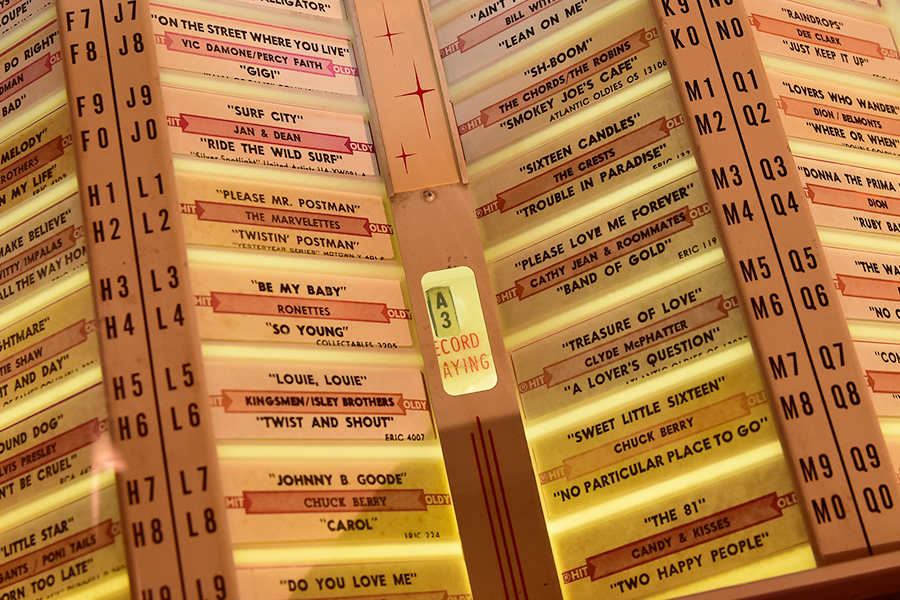 BO RIGHT"
BAD"
MELODY"
BROTHERS
N MY LIFE"
MAKE BELIEVE"
ITTY/IMPALAS
ALL THE WAY HO
GHTMARE"
TIE SHAW
T AND DAY"
OUND DOG"
ELVIS PRESLEY
N'T BE CRUEL"
LITTLE STAR"
GANTS / PONI TAILS
ORN TOO LATE"
F7 J7
F8 J8
F9 J9
F0 J0
H1 L1
H2 L2
H3 L3
H4 L4
H5 L5
H6 L6
H7 L7
H8 L8
H9 L9
ALLIGATOR"
"ON THE STREET WHERE YOU LIVE"
HIT VIC DAMONE/PERCY FAITH OLDY
"GIGI"
"SURF CITY"
HIT JAN & DEAN OLDY
"RIDE THE WILD SURF"
"PLEASE MR. POSTMAN"
HIT THE MARVELETTES OLDY
"TWISTIN' POSTMAN"
"YESTERYEAR SERIES" MOTOWN
"BE MY BABY"
HIT RONETTES OLDY
"SO YOUNG"
COLLECTABLES 3205
"LOUIE, LOUIE"
HIT KINGSMEN/ISLEY BROTHERS OLDY
"TWIST AND SHOUT"
ERIC 4007
"JOHNNY B. GOODE"
HIT CHUCK BERRY OLDY
"CAROL"
ERIC 224
"DO YOU LOVE ME"
A
3
ECORD
AYING
"AIN'T
HIT BILL WIT
"LEAN ON ME"
"SH-BOOM"
HIT THE CHORDS/THE ROBINS OLDY
"SMOKEY JOE'S CAFE"
ATLANTIC OLDIES OS 13106
"SIXTEEN CANDLES"
HIT THE CRESTS OLDY
"TROUBLE IN PARADISE"
"PLEASE LOVE ME FOREVER"
HIT CATHY JEAN & ROOMMATES OLDY
"BAND OF GOLD"
ERIC 119
"TREASURE OF LOVE"
HIT CLYDE McPHATTER OLDY
"A LOVER'S QUESTION"
"SWEET LITTLE SIXTEEN"
HIT CHUCK BERRY OLDY
"NO PARTICULAR PLACE TO GO"
"THE 81"
HIT CANDY & KISSES OLDY
"TWO HAPPY PEOPLE"
K9 N9
K0 N0
M1 Q1
M2 Q2
M3 Q3
M4 Q4
M5 Q5
M6 Q6
M7 Q7
M8 Q8
M9 Q9
M0 Q0
"RAINDROPS"
HIT DEE CLARK OLDY
"JUST KEEP IT UP"
"LOVERS WHO WANDER
HIT DION / BELMONTS
"WHERE OR WHEN"
"DONNA THE PRIMA
HIT DION
"RUBY BA
"THE WA
HIT
"CON